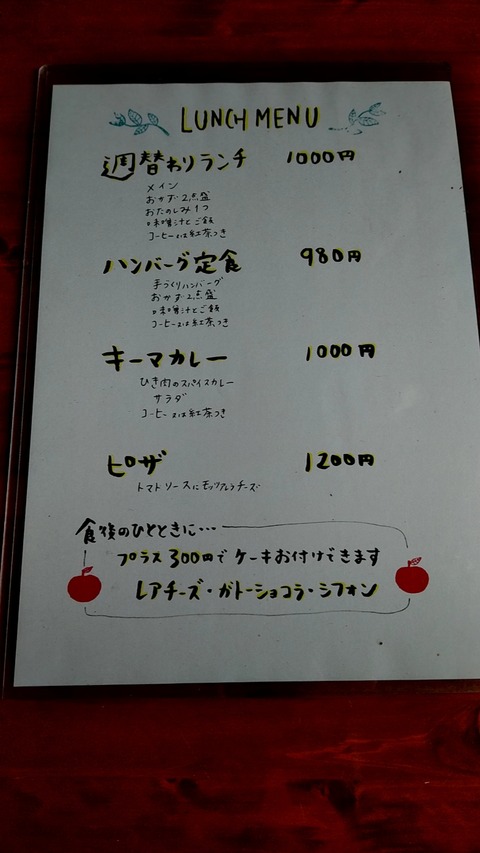 LUNCH MENU
週替わりランチ 1000円
メイン
おかず2点盛
おたのしみ1つ
味噌汁とご飯
コーヒー又は紅茶つき
ハンバーグ定食 980円
手づくりハンバーグ
おかず2点盛
味噌汁とご飯
コーヒー又は紅茶つき
キーマカレー 1000円
ひき肉のスパイスカレー
サラダ
コーヒー又は紅茶つき
ピザ 1200円
トマトソースにモッツァレラチーズ
食後のひとときに…
プラス300円でケーキお付けできます
レアチーズ・ガトーショコラ・シフォン